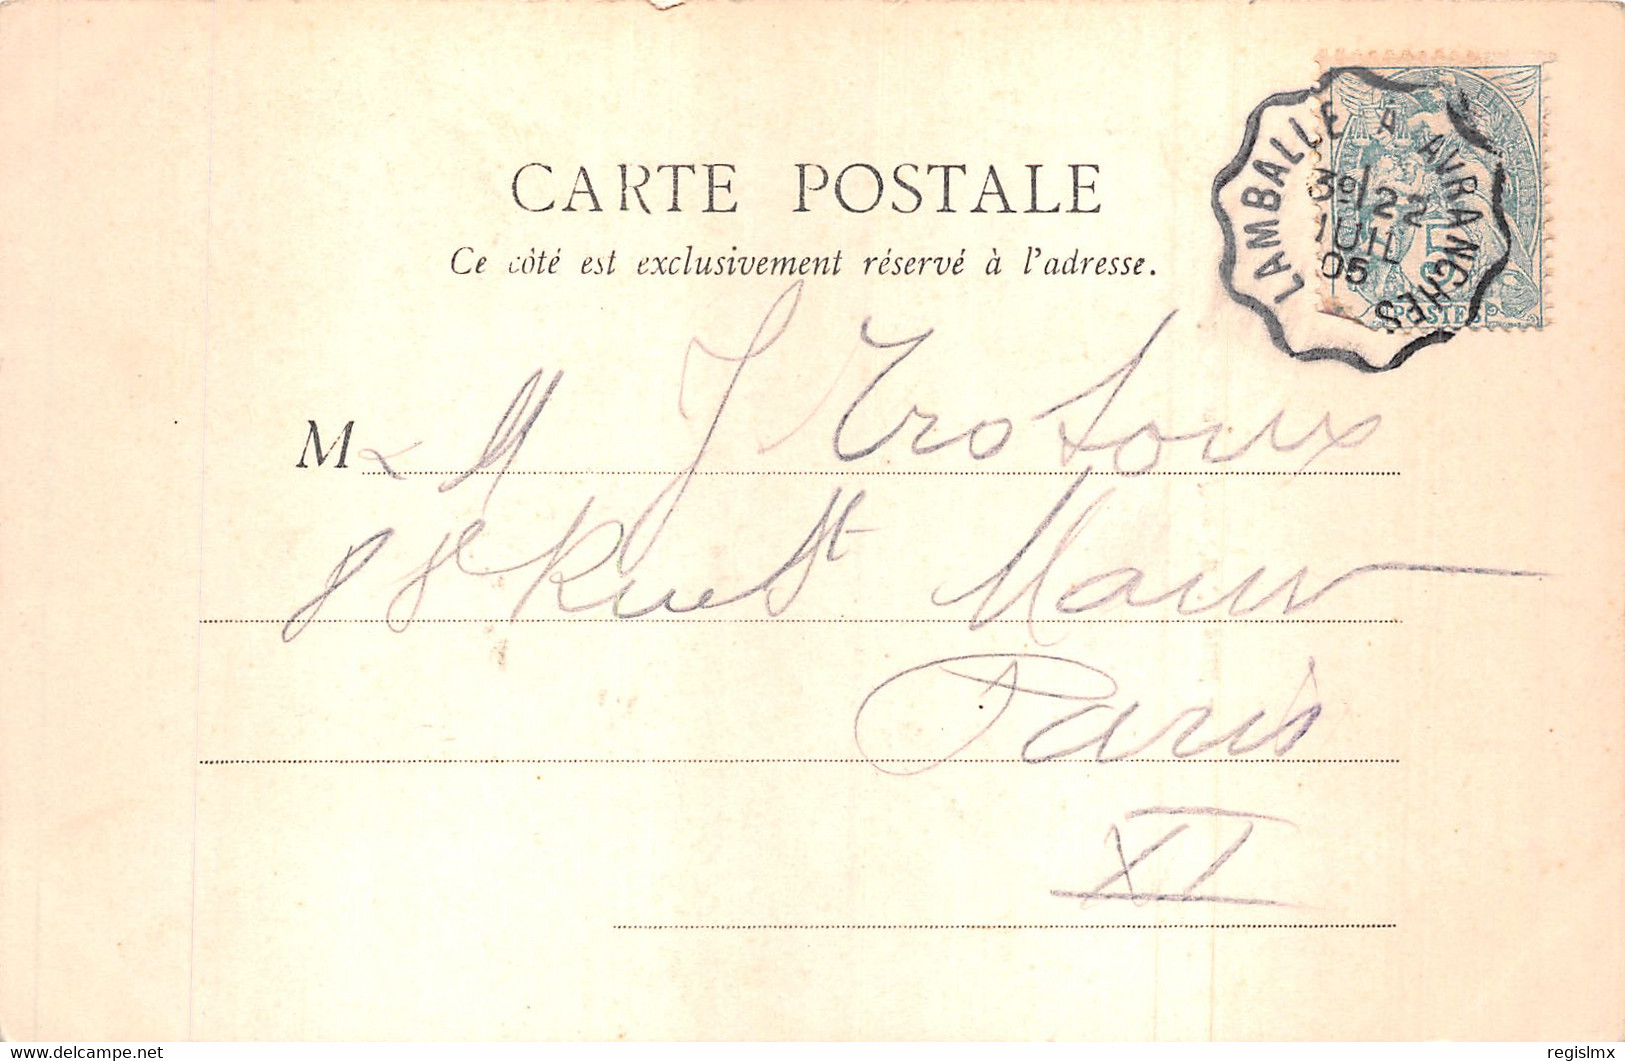 CARTE POSTALE
Ce côté est exclusivement réservé à l'adresse.
LAMBALLE A AVRANCHES
3º/22
JUIL
05
5
POSTES
M & M J Trotoux
88 Rue St Maur
Paris
XI
delcampe.net
regislmx